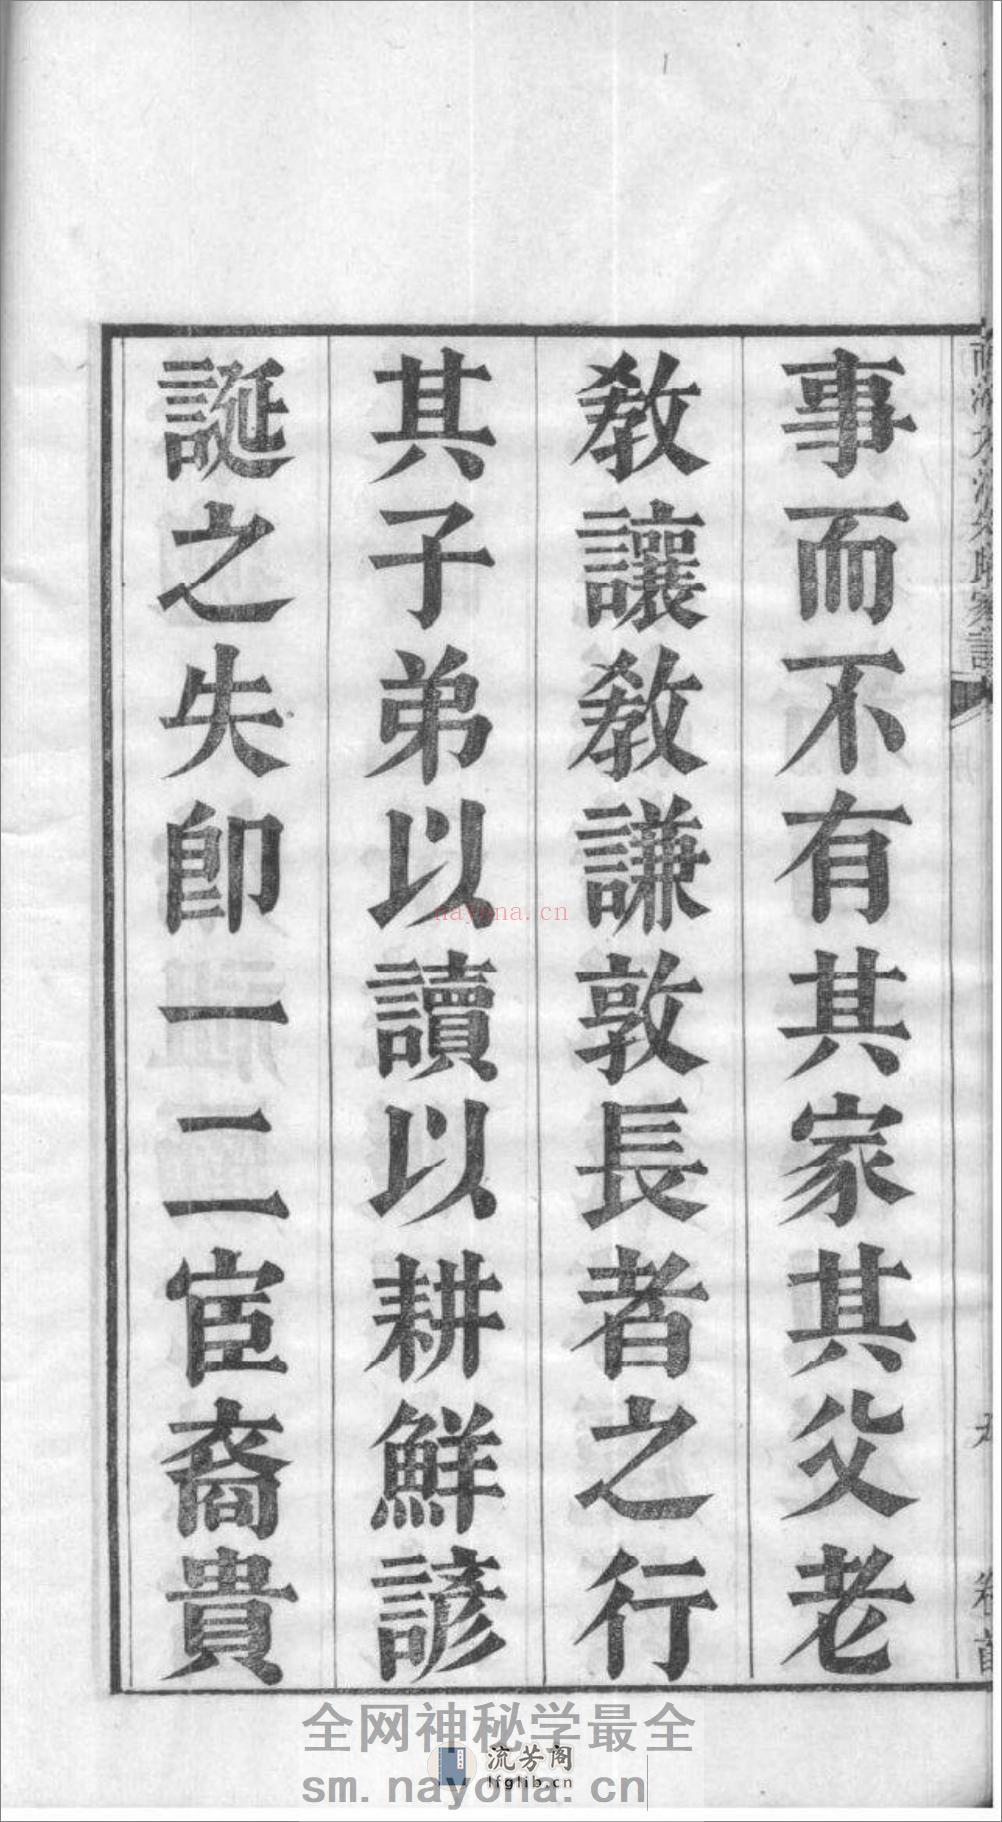 事而不有其家其父老
教讓教謙敦長者之行
其子弟以讀以耕鮮諺
誕之失即一二宦裔貴
nayona.cn
全网神秘学最全
流芳阁
lfglib.cn
sm.nayona.cn